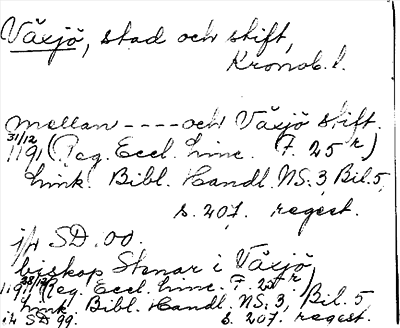 Växjö, stad och stift,
Kronob. l.
mellan ---- och Växjö stift.
31/12
1191 (Reg. Eccl. Linc. F. 25 r)
Link. Bibl. Handl. NS. 3, Bil. 5,
s. 207. regest.
jfr SD. 00.
biskop Stenar i Växjö
1191 (Reg. Eccl. Linc. F. 25 r)
Link. Bibl. Handl. NS. 3, Bil. 5
jfr SD 99. s. 207. regest.